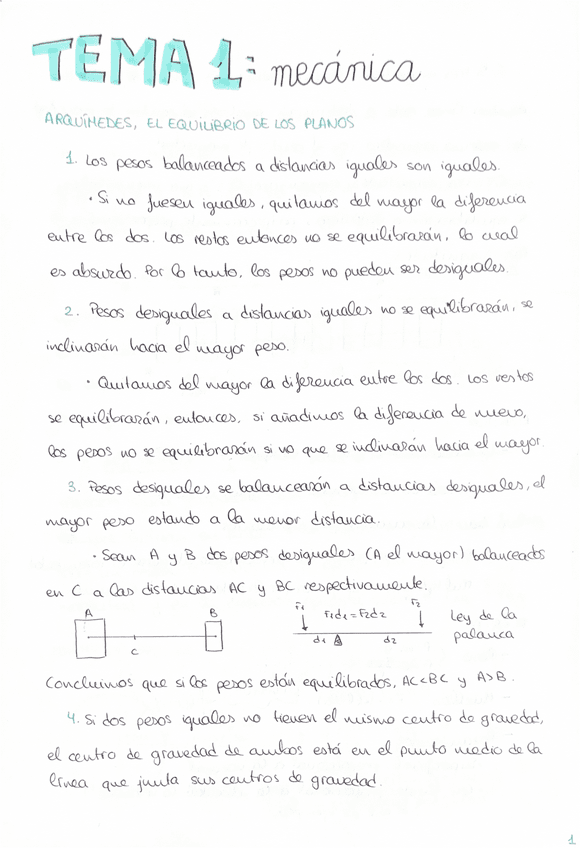 TEMA 1: mecánica
ARQUÍMEDES, EL EQUILIBRIO DE LOS PLANOS
1. Los pesos balanceados a distancias iguales son iguales.
· Si no fuesen iguales, quitamos del mayor la diferencia
entre los dos. Los restos entonces no se equilibrarán, lo cual
es absurdo. Por lo tanto, los pesos no pueden ser desiguales.
2. Pesos desiguales a distancias iguales no se equilibrarán, se
inclinarán hacia el mayor peso.
· Quitamos del mayor la diferencia entre los dos. Los restos
se equilibrarán, entonces, si añadimos la diferencia de nuevo,
los pesos no se equilibrarán si no que se inclinarán hacia el mayor.
3. Pesos desiguales se balancearán a distancias desiguales, el
mayor peso estando a la menor distancia.
· Sean A y B dos pesos desiguales (A el mayor) balanceados
en C a las distancias AC y BC respectivamente.
A B C
F1 F1d1=F2d2 F2
d1 d2
Ley de la
palanca
Concluimos que si los pesos están equilibrados, AC<BC y A>B.
4. Si dos pesos iguales no tienen el mismo centro de gravedad,
el centro de gravedad de ambos está en el punto medio de la
línea que junta sus centros de gravedad.
1